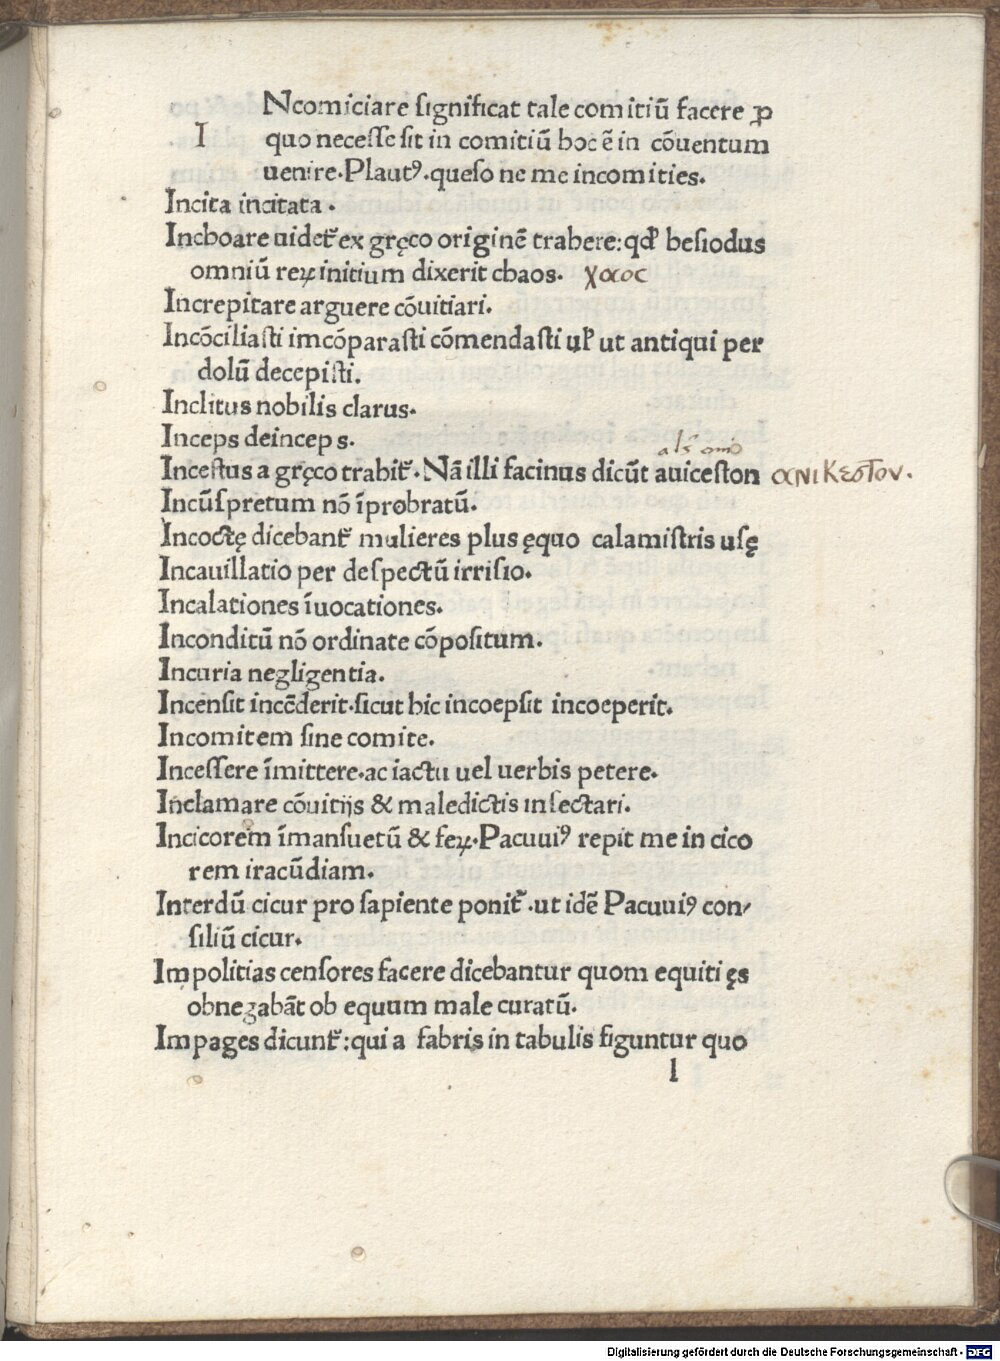 Ncomiciare significat tale comitiū facere ꝓ
I quo necesse sit in comitiū hoc ē in cōuentum
uenire. Plautꝰ. queso ne me incomities.
Incita incitata.
Inchoare uidet᷑ ex gręco originē trahere: qđ hesiodus
omniū reꝝ initium dixerit chaos. χαος
Increpitare arguere cōuitiari.
Incōciliasti imcōparasti cōmendasti ul̓ ut antiqui per
dolū decepisti.
Inclitus nobilis clarus.
Inceps deinceps.
Incestus a gręco trahit᷑. Nā illi facinus dicūt auiceston ανικεστον.
Incūspretum nō īprobratū.
Incoctę dicebant᷑ mulieres plus ęquo calamistris usę
Incauillatio per despectū irrisio.
Incalationes īuocationes.
Inconditū nō ordinate cōpositum.
Incuria negligentia.
Incensit incēderit. sicut hic incoepsit incoeperit.
Incomitem sine comite.
Incessere īmittere. ac iactu uel uerbis petere.
Inclamare cōuitijs & maledictis insectari.
Incicorem īmansuetū & feꝝ. Pacuuiꝰ repit me in cico
rem iracūdiam.
Interdū cicur pro sapiente ponit᷑. ut idē Pacuuiꝰ con-
siliū cicur.
Impolitias censores facere dicebantur quom equiti ęs
obnegabāt ob equum male curatū.
Impages dicunt᷑: qui a fabris in tabulis figuntur quo
l
Digitalisierung gefördert durch die Deutsche Forschungsgemeinschaft - DFG